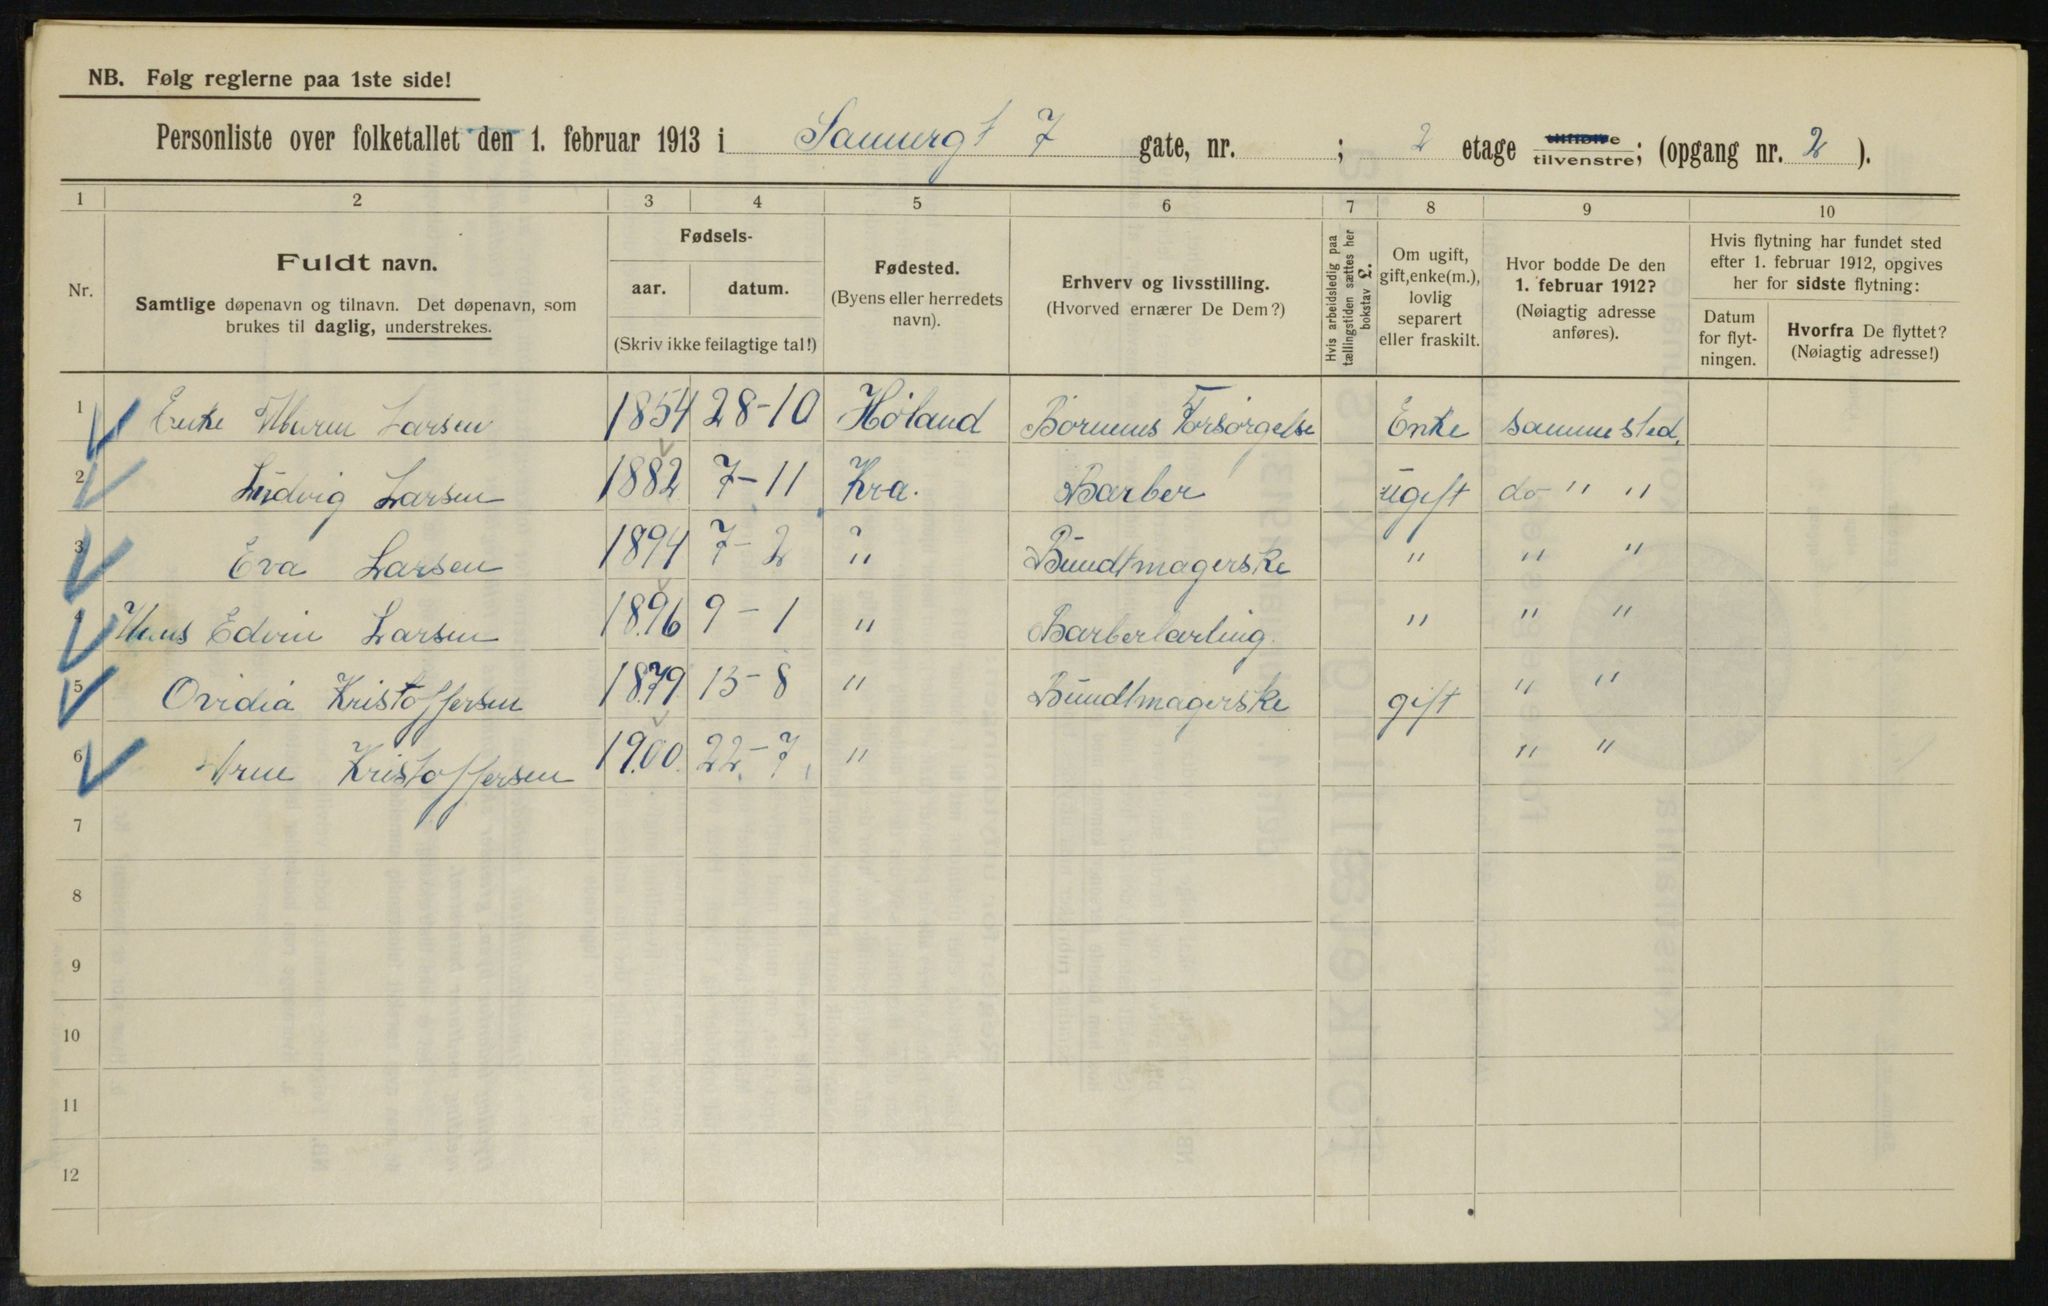 NB. Følg reglerne paa 1ste side!
Personliste over folketallet den 1. februar 1913 i Sannergt 7 gate, nr. ; 2 etage tilvenstre; (opgang nr. 2 ).
1 2 3 4 5 6 7 8 9 10
Nr.
Fuldt navn.
Samtlige døpenavn og tilnavn. Det døpenavn, som
brukes til daglig, understrekes.
Fødsels-
aar. datum.
(Skriv ikke feilagtige tal!)
Fødested.
(Byens eller herredets
navn).
Erhverv og livsstilling.
(Hvorved ernærer De Dem?)
Hvis arbeidsledig paa
tællingstiden sættes her
bokstav L.
Om ugift,
gift, enke(m.),
lovlig
separert
eller fraskilt.
Hvor bodde De den
1. februar 1912?
(Nøiagtig adresse
anføres).
Hvis flytning har fundet sted
efter 1. februar 1912, opgives
her for sidste flytning:
Datum
for flyt-
ningen.
Hvorfra De flyttet?
(Nøiagtig adresse!)
1 Enke Maren Larsen 1854 28-10 Høland Børnenes Forsørgelse Enke sammested.
2 Ludvig Larsen 1882 7-11 Kra. Barber ugift do " "
3 Eva Larsen 1894 7-2 " Bundtmagerske " " "
4 Hans Edvin Larsen 1896 9-1 " Barberlærling. " " "
5 Ovidia Kristoffersen 1879 13-8 " Bundtmagerske gift " "
6 Arne Kristoffersen 1900 22-7 " " "
7
8
9
10
11
12